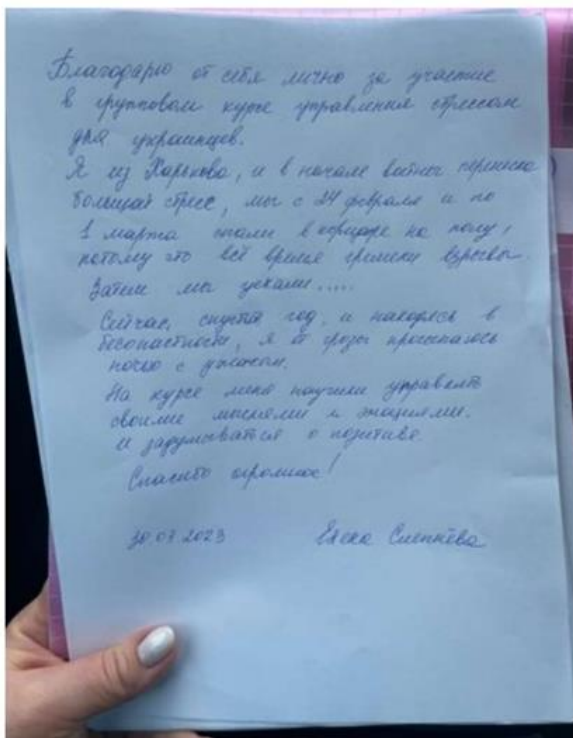 Благодарю от себя лично за участие
в групповом курсе управления стрессом
для украинцев.
Я из Харькова, и в начале войны перенесла
большой стресс, мы с 24 февраля и по
1 марта спали в коридоре на полу,
потому что всё время гремели взрывы.
Затем мы уехали.....
Сейчас, спустя год, и находясь в
безопастности, я от грозы просыпаюсь
ночью с ужасом.
На курсе меня научили управлять
своими мыслями и эмоциями.
и задумыватся о позитиве.
Спасибо огромное!
30.07.2023 Елена